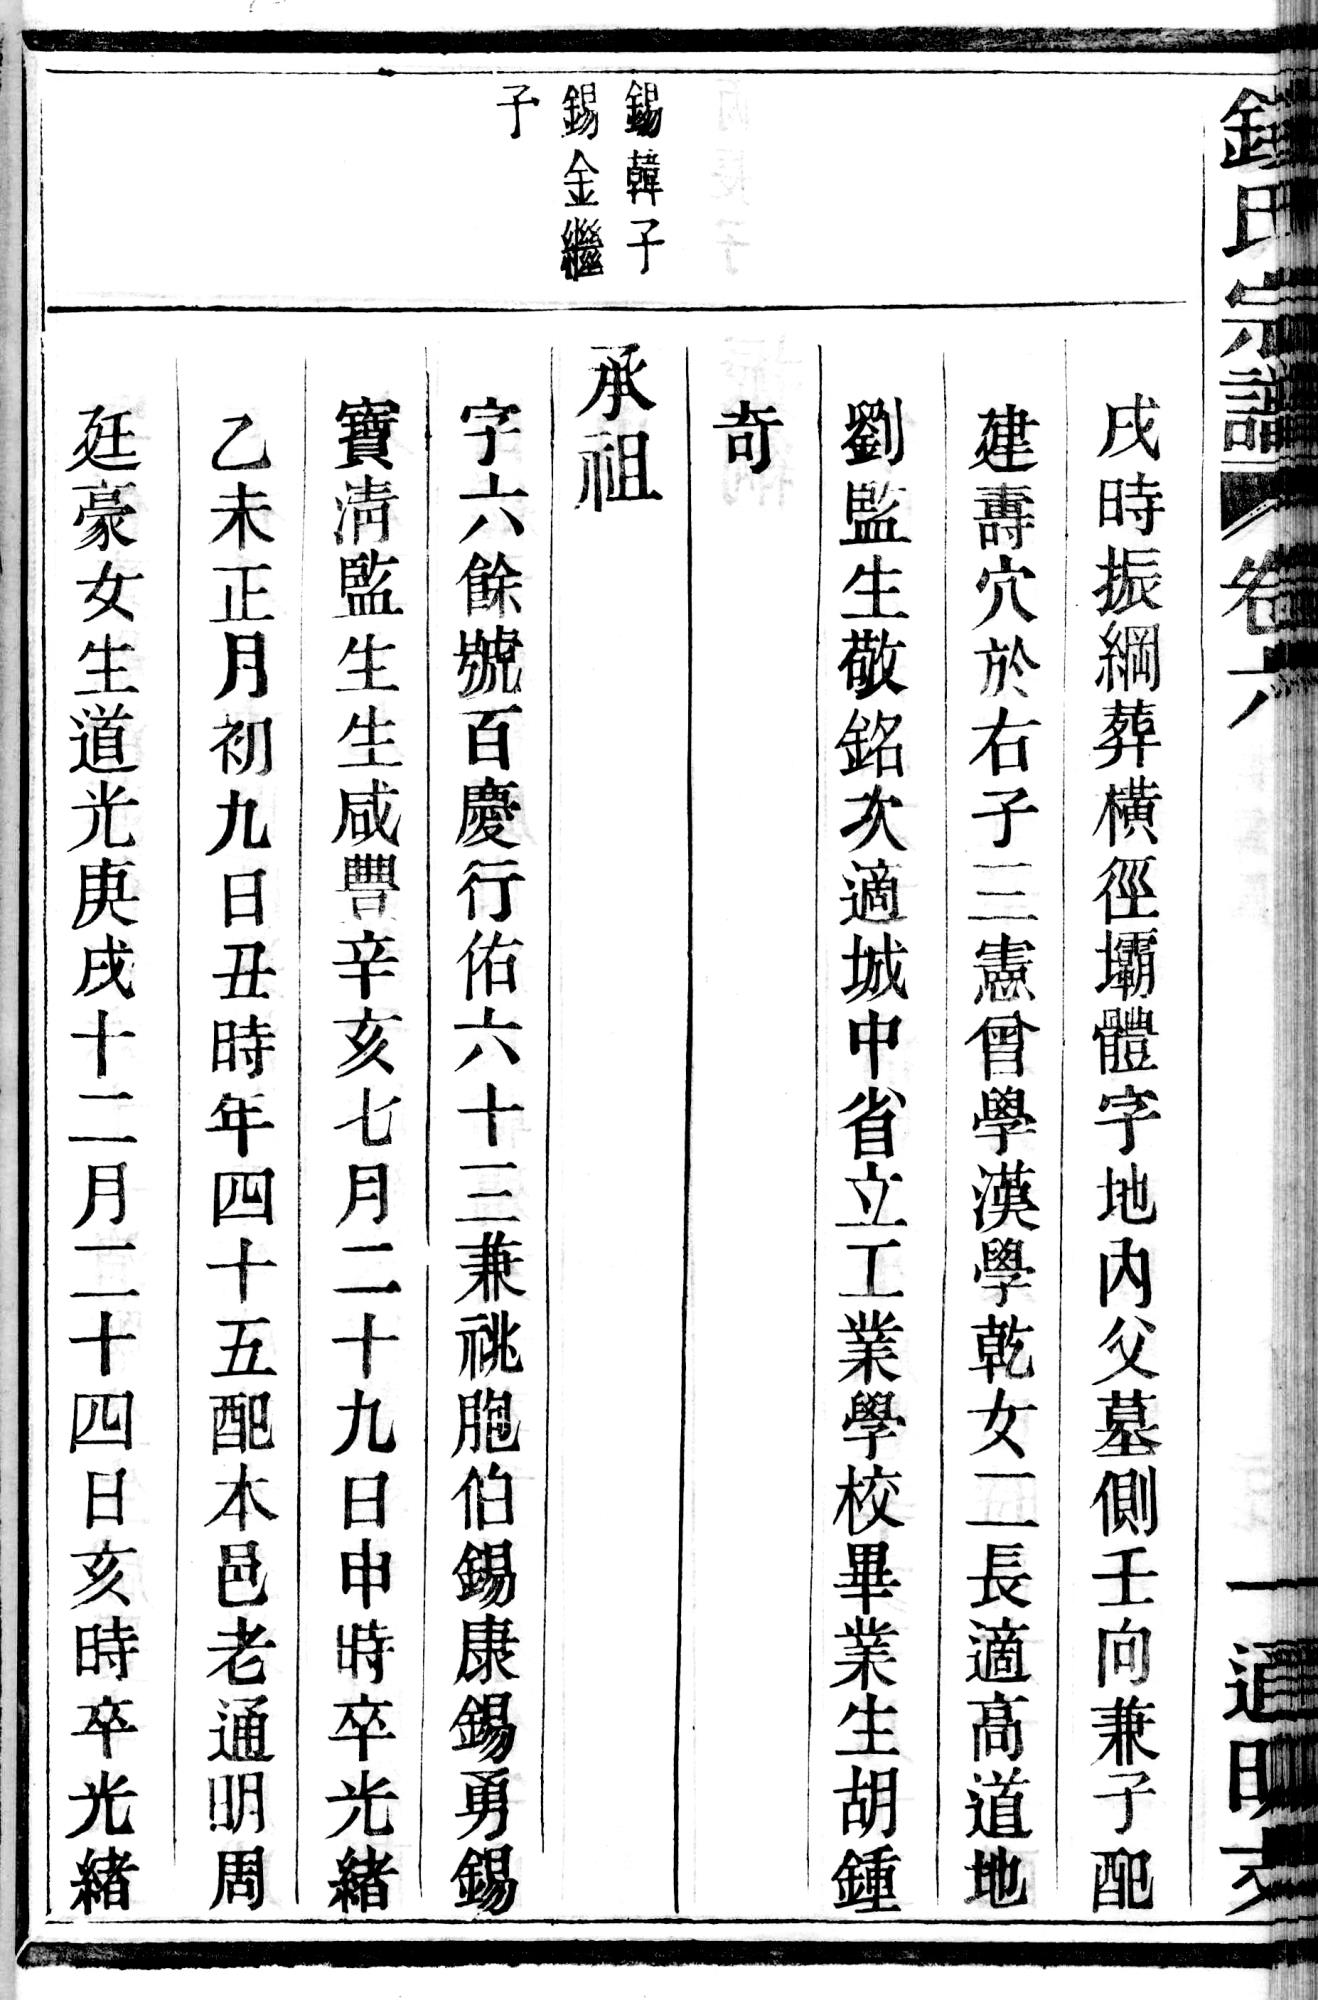 鍾氏宗譜 卷六 道明支
錫韓子
錫金繼
子
戌時振綱葬橫徑壩體字地內父墓側壬向兼子配
建壽穴於右子三憲曾學漢學乾女二長適高道地
劉監生敬銘次適城中省立工業學校畢業生胡鍾
奇
承祖
字六餘號百慶行佑六十三兼祧胞伯錫康錫勇錫
寶清監生生咸豐辛亥七月二十九日申時卒光緒
乙未正月初九日丑時年四十五配本邑老通明周
廷豪女生道光庚戌十二月二十四日亥時卒光緒